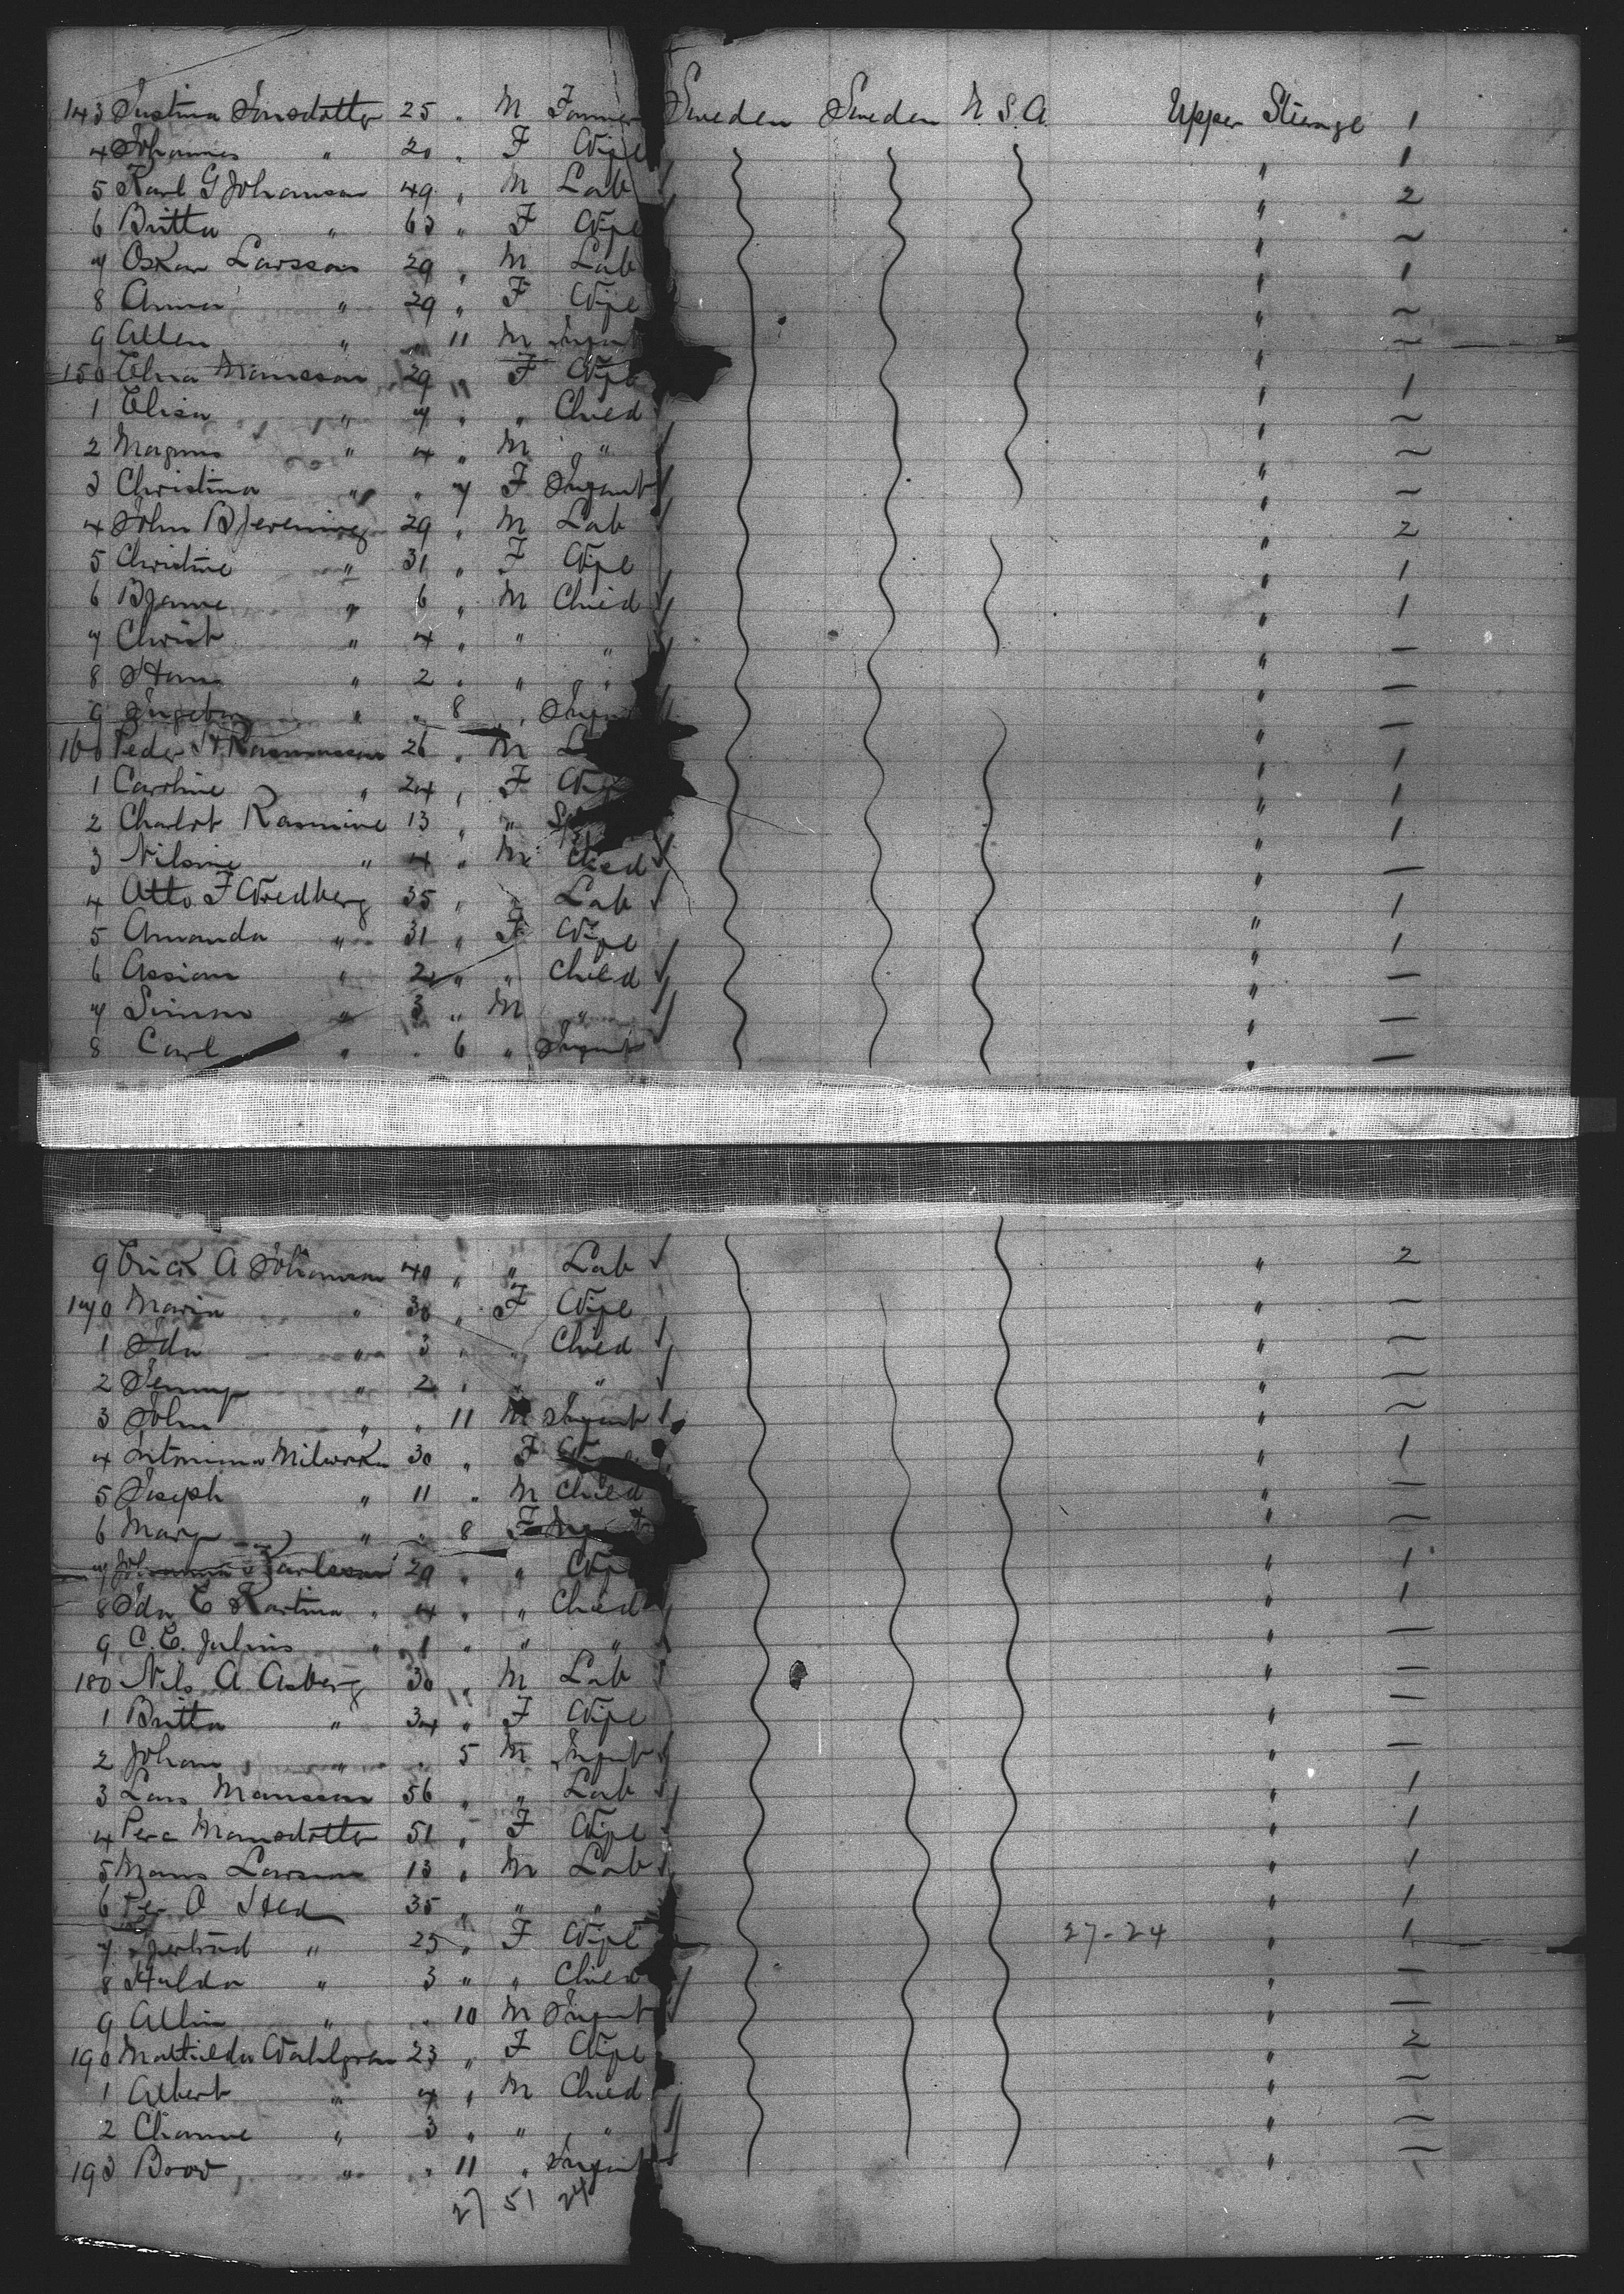 143 Justina Jonsdotter 25 " M Farmer Sweden Sweden U.S.A. Upper Steerage 1
4 Johannes " 20 " F Wife " 1
5 Karl G Johanson 49 " M Lab " 2
6 Britta " 63 " F Wife " ~
7 Oskar Larsson 29 " M Lab " 1
8 Anna " 29 " F Wife " ~
9 Allen " " 11 M Infant " ~
150 Elna Mansson 29 " F Wife " 1
1 Elisa " 7 " " Child " ~
2 Magnus " 4 " M " " ~
3 Christina " " 7 F Infant " ~
4 John Bjerening 29 " M Lab " 2
5 Christine " 31 " F Wife " 1
6 Bjarne " 6 " M Child " 1
7 Christ " 4 " " " " —
8 Hans " 2 " " " " —
9 Ingeborg " " 8 " Infant " —
160 Peder Rasmussen 26 " M " 1
1 Caroline " 24 " F Wife " 1
2 Charlot Rasmine 13 " " " 1
3 Nilsine " 4 " M Child " —
4 Otto F Wredberg 35 " " Lab " 1
5 Amanda " 31 " F Wife " 1
6 Assian " 2 " " Child " —
7 Simon " 3 " M " " —
8 Carl " " 6 " Infant " —
9 Erick A Johanson 40 " " Lab " 2
170 Maria " 38 " F Wife " ~
1 Ida " 3 " " Child " ~
2 Jenny " 2 " " " " ~
3 John " " 11 M Infant " ~
4 Antonina Milewska 30 " F " 1
5 Joseph " 11 " M Child " —
6 Mary " " 8 F Infant " ~
7 Johanna Karlsson 29 " " Wife " 1
8 Ida C Kartina " 4 " " Child " 1
9 C. E. Julius " 1 " " " " —
180 Nils A Asberg 30 " M Lab " —
1 Britta " 34 " F Wife " —
2 Johan " " 5 M Infant " —
3 Lars Mansson 56 " " Lab " 1
4 Pera Mansdotter 51 " F Wife " 1
5 Mans Larsson 13 " M Lab " 1
6 Per O Hed 35 " " " " 1
7 Gertrud " 25 " F Wife 27-24 " 1
8 Hulda " 3 " " Child " —
9 Allin " " 10 M Infant " —
190 Mathilda Wahlgren 23 " F Wife " 2
1 Albert " 4 " M Child " ~
2 " 3 " " " " ~
193 " " 11 " Infant " ~
27 51 24